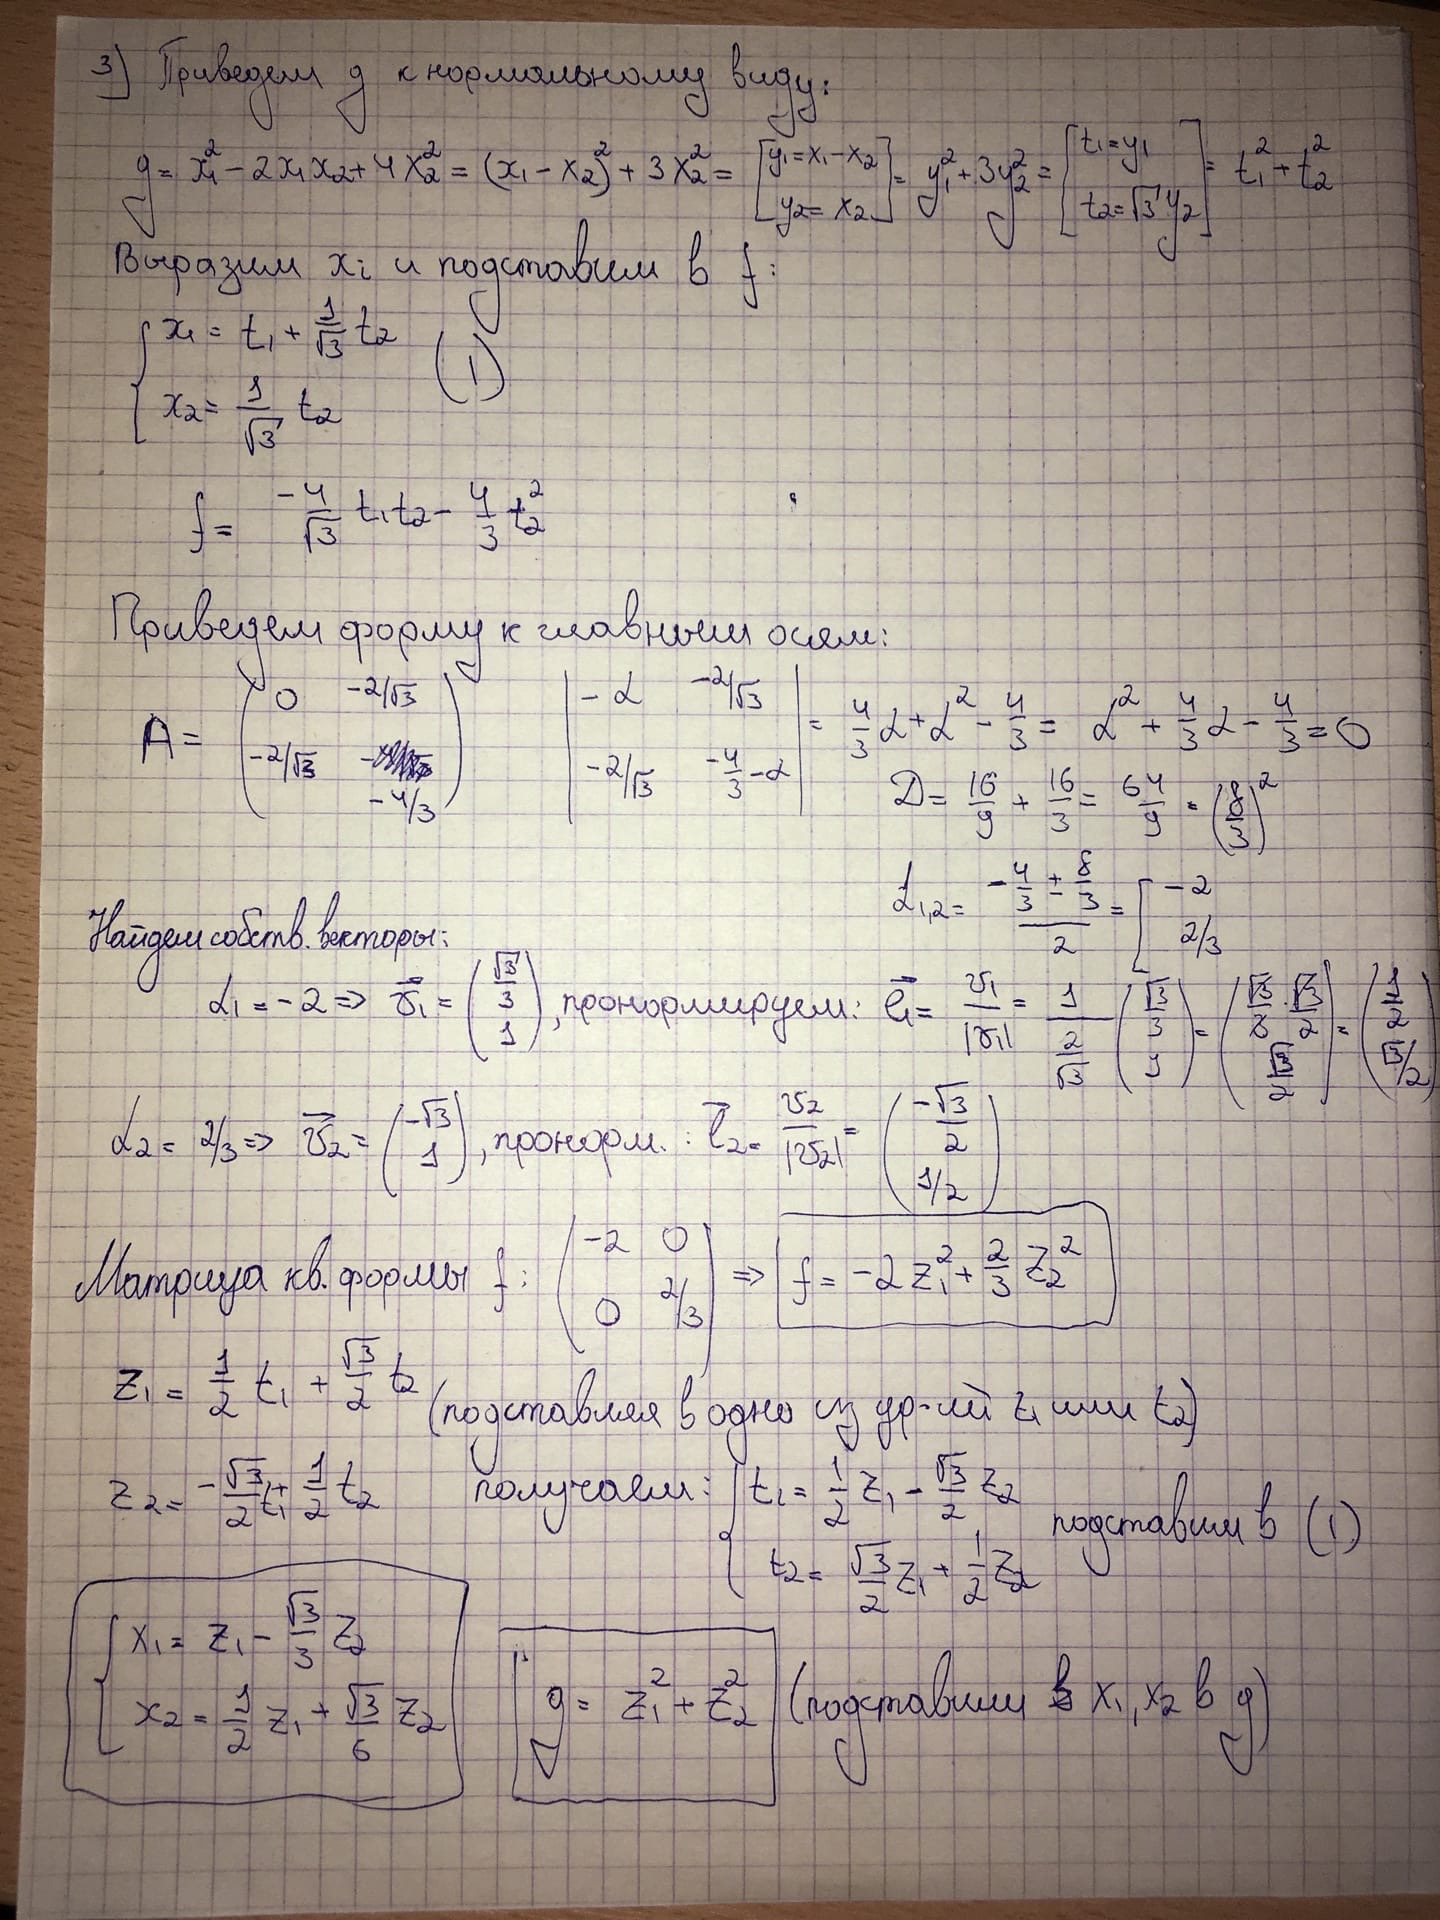 3) Приведем g к нормальному виду:
g = x₁² - 2x₁x₂ + 4x₂² = (x₁ - x₂)² + 3x₂² = [y₁ = x₁ - x₂; y₂ = x₂] = y₁² + 3y₂² = [t₁ = y₁; t₂ = √3 y₂] = t₁² + t₂²
Выразим xᵢ и подставим в f:
{ x₁ = t₁ + 1/√3 t₂
x₂ = 1/√3 t₂ (1)
f = -4/√3 t₁t₂ - 4/3 t₂²
Приведем форму к главным осям:
A = (0 -2/√3; -2/√3 -4/3) |-α -2/√3; -2/√3 -4/3-α| = 4/3 α + α² - 4/3 = α² + 4/3 α - 4/3 = 0
D = 16/9 + 16/3 = 64/9 = (8/3)²
α₁,₂ = (-4/3 ± 8/3)/2 = [-2; 2/3
Найдем собств. векторы:
α₁ = -2 => v₁ = (√3/3; 1), пронормируем: e₁ = v₁/|v₁| = 1/(2/√3) (√3/3; 1) = (√3/3 · √3/2; √3/2) = (1/2; √3/2)
α₂ = 2/3 => v₂ = (-√3; 1), пронорм.: e₂ = v₂/|v₂| = (-√3/2; 1/2)
Матрица кв. формы f: (-2 0; 0 2/3) => f = -2z₁² + 2/3 z₂²
z₁ = 1/2 t₁ + √3/2 t₂ (подставляя в одно из ур-ий t₁ или t₂)
z₂ = -√3/2 t₁ + 1/2 t₂ получаем: { t₁ = 1/2 z₁ - √3/2 z₂
t₂ = √3/2 z₁ + 1/2 z₂ подставим в (1)
{ x₁ = z₁ - √3/3 z₂
x₂ = 1/2 z₁ + √3/6 z₂
g = z₁² + z₂² (подставили x₁, x₂ в g)